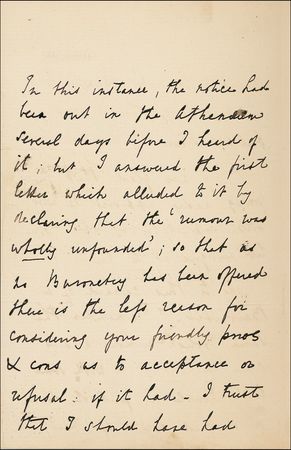 In this instance, the notice had
been out in the Athenæum
several days before I heard of
it; but I answered the first
letter which alluded to it by
declaring that the 'rumour was
wholly unfounded'; so that as
no Baronetcy has been offered
there is the less reason for
considering your friendly pros
& cons as to acceptance or
refusal: if it had - I trust
that I should have had